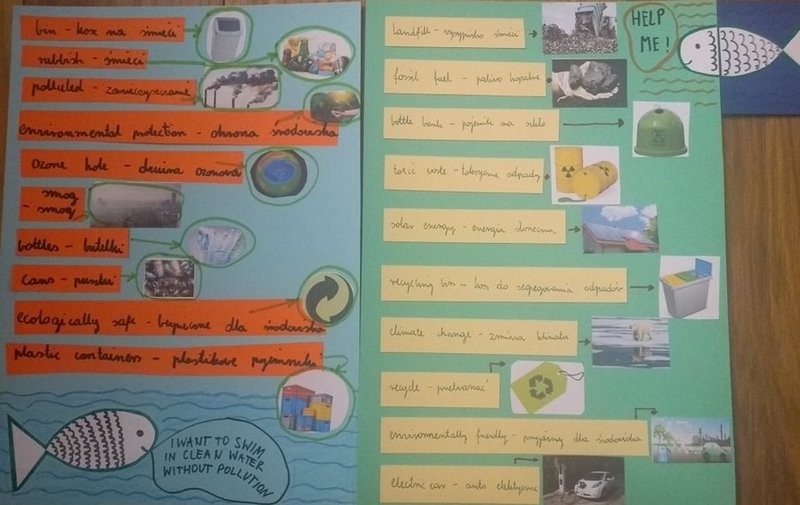 bin - kosz na śmieci
rubbish - śmieci
polluted - zanieczyszczenie
environmental protection - ochrona środowiska
ozone hole - dziura ozonowa
smog
- smog
bottles - butelki
cans - puszki
ecologically safe - bezpieczne dla środowiska
plastic containers - plastikowe pojemniki
I WANT TO SWIM
IN CLEAN WATER
WITHOUT POLLUTION
landfill - wysypisko śmieci
fossil fuel - paliwo kopalne
bottle bank - pojemnik na szkło
toxic waste - toksyczne odpady
solar energy - energia słoneczna
recycling bin - kosz do segregowania odpadów
climate change - zmiana klimatu
recycle - przetwarzać
environmentally friendly - przyjazny dla środowiska
electric car - auto elektryczne
HELP
ME!